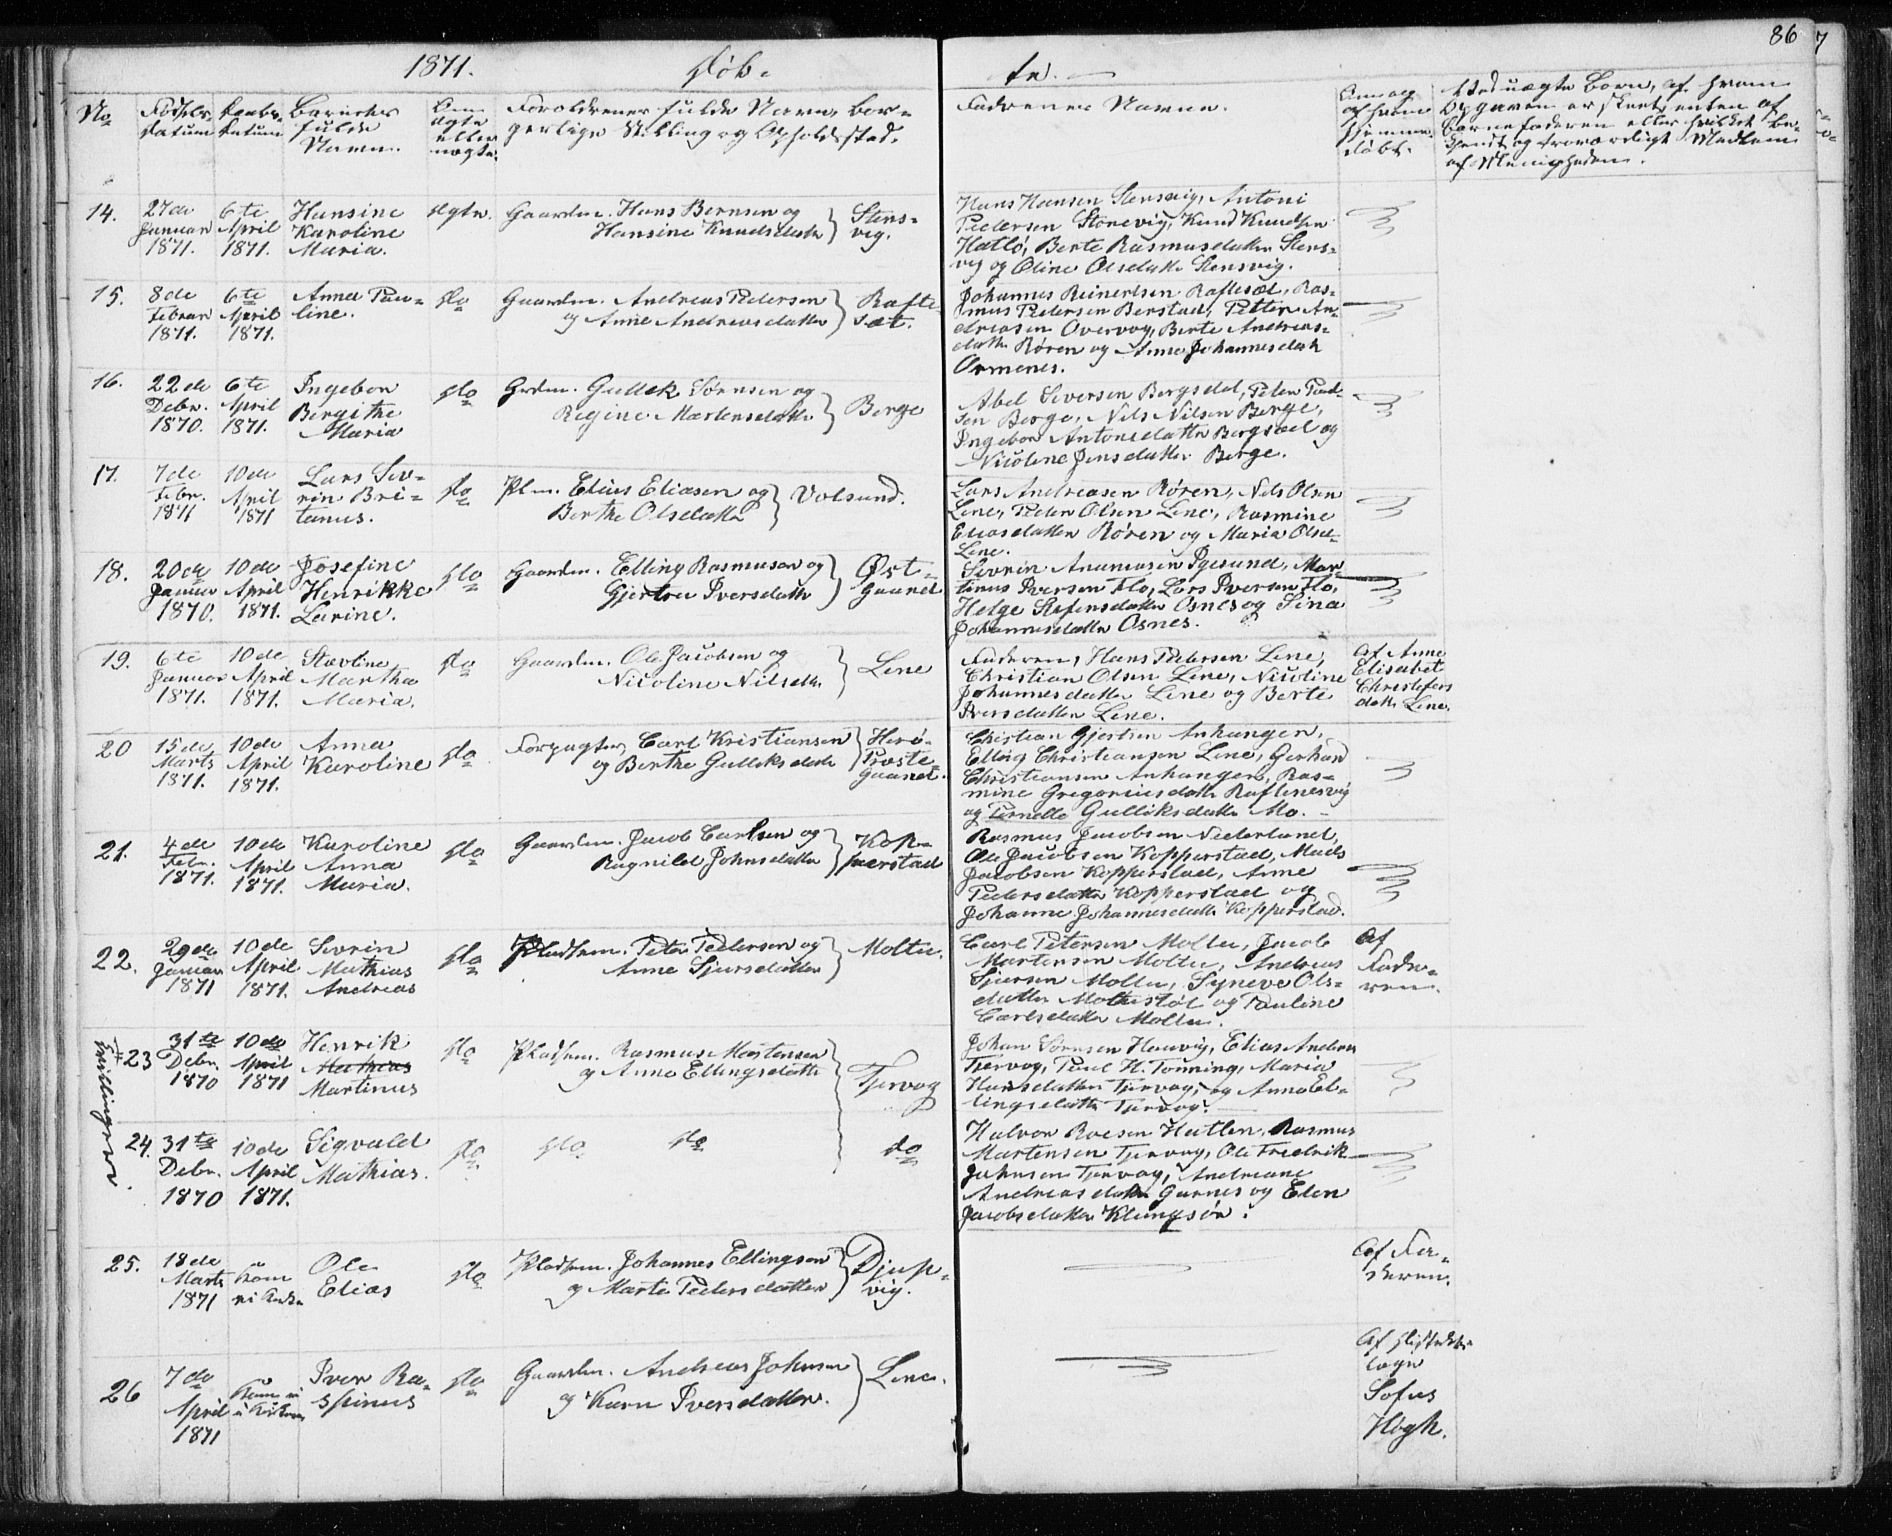 1871. Døb-
te.
86
No
Fødsels-
datum
Daabs-
datum
Barnets
fulde
Navn.
Om
ægte
eller
uægte.
Forældrenes fulde Navn, bor-
gerlige Stilling og Opholdssted.
Faddernes Navne.
Om og
af hvem
hjemme-
døbt.
Ved uægte Børn, af hvem
Opgaven er skeet, enten af
Barnefaderen eller hvilket be-
kjendt og troværdigt Medlem
af Menigheden.
14.
27de
Januar
1871.
6te
April
1871.
Hansine
Karoline
Maria.
Ægte.
Gaardm. Hans Bernsen og
Hansine Knudsdatter
Stens-
vig.
Hans Hansen Stensvig, Antoni
Pedersen Stenevig, Knud Knudsen
Hatlø, Berte Rasmusdatter Stens-
vig og Oline Olsdatter Stensvig.
15.
8de
Februar
1871.
6te
April
1871.
Anna Pau-
line.
do
Gaardm. Andreas Pedersen
og Anne Andreasdatter
Rafte-
sæt.
Johannes Reinertsen Raftesæt, Ras-
mus Pedersen Berstad, Petter An-
dreasen Overvog, Berte Andreas-
datter Røren og Anne Johannesdatt
Ormenes.
16.
22de
Debr.
1870.
6te
April
1871.
Ingebor
Bergithe
Maria
do
Grdm. Gullek Sørnsen og
Regine Martensdatter
Berge
Abel Seversen Bergsdal, Peder Ped-
sen Berge, Nils Nilsen Berge,
Ingebor Antonsdatter Bergsæl og
Nicoline Jensdatter Berge.
17.
7de
Febr.
1871
10de
April
1871
Lars Sev-
rin Bri-
tanus.
do
Plm. Elias Eliasen og
Berthe Olsdatter
Volsund.
Lars Andreasen Røren, Nils Olsen
Lene, Peder Olsen Lene, Rasmine
Eliasdatter Røren og Maria Olsd-
Lene.
18.
20de
Januar
1870.
10de
April
1871.
Josefine
Henrikke
Larine.
do
Gaardm. Elling Rasmusen og
Gjertru Iversdatter
Øst-
Gaard
Sevrin Ananiasen Igesund, Mar-
tinus Iversen Flo, Lars Iversen Flo,
Helge Stefensdatter Osnes og Sina
Johannesdatter Osnes.
19.
6te
Januar
1871.
10de
April
1871.
Stavline
Martha
Maria.
do
Gaardm. Ole Jacobsen og
Nicoline Nilsdtr
Lene
Faderen, Hans Pedersen Lene,
Christian Olsen Lene, Nicoline
Johannesdatter Lene og Berte
Iversdatter Lene.
Af Anne
Elisabet
Christofers
datt. Lene.
20
15de
Marts
1871.
10de
April
1871.
Anna
Karoline
do
Forpagter, Carl Kristiansen
og Berthe Gulleksdatt
Herø-
Præste-
Gaard.
Christian Gjertsen Anhangen,
Elling Christiansen Lene, Gerhard
Christiansen Anhangen, Ras-
mine Gregoriusdatt Raftenesvig
og Pernelle Gulliksdatt Mo.
21.
4de
Febr.
1871.
10de
April
1871.
Karoline
Anna
Maria.
do
Gaardm. Jacob Carlsen og
Ragnild Johnsdatter
Kop-
perstad
Rasmus Jacobsen Nederlund,
Ole Jacobsen Kopperstad, Mads
Jacobsen Kopperstad, Anne
Pedersdatter Kopperstad og
Johanne Johannesdatt Kopperstad.
22.
29de
Januar
1871
10de
April
1871.
Sevrin
Mathias
Andreas
do
Pladsem. Peter Pedersen og
Anne Sjursdatter
Moltu.
Carl Petersen Moltu, Jacob
Martensen Moltu, Andreas
Sjursen Moltu, Syneve Ols-
datter Moltustøl og Pauline
Carlsdatter Moltu.
Af
Fade-
ren.
Tvillinger.
23
31te
Debr.
1870
10de
April
1871
Henrik
Mathias
Martinus
do
Pladsem. Rasmus Martensen
og Anna Ellingsdatt
Tjervog
Johan Sørnsen Houvig, Elias Andrea
Tjervog, Paul H. Tonning, Maria
Hansdatter Tjervog, og Anna El-
lingsdatt Tjervog.
24.
31te
Debr.
1870
10de
April
1871.
Sigvald
Mathias.
do
do
do
do
Halvor Roesen Hatlen, Rasmus
Martensen Tjervog, Ole Fredrik
Johnsen Tjervog, Andreane
Andreasdatter Garnes og Elen
Jacobsdatter Klungsør.
25.
18de
Marts
1871
Kom
ei Kirke
Ole
Elias
do
Pladsem. Johannes Ellingsen
og Marte Pedersdatter
Djup-
vig.
Af Fa-
deren.
26
7de
April
1871
Kom ei
i Kirken
Iver Ra-
spinus
do
Gaardm. Andreas Johnsen
og Karn Iversdatter.
Lene.
Af Distrikts-
læge
Sofus
Høgh.